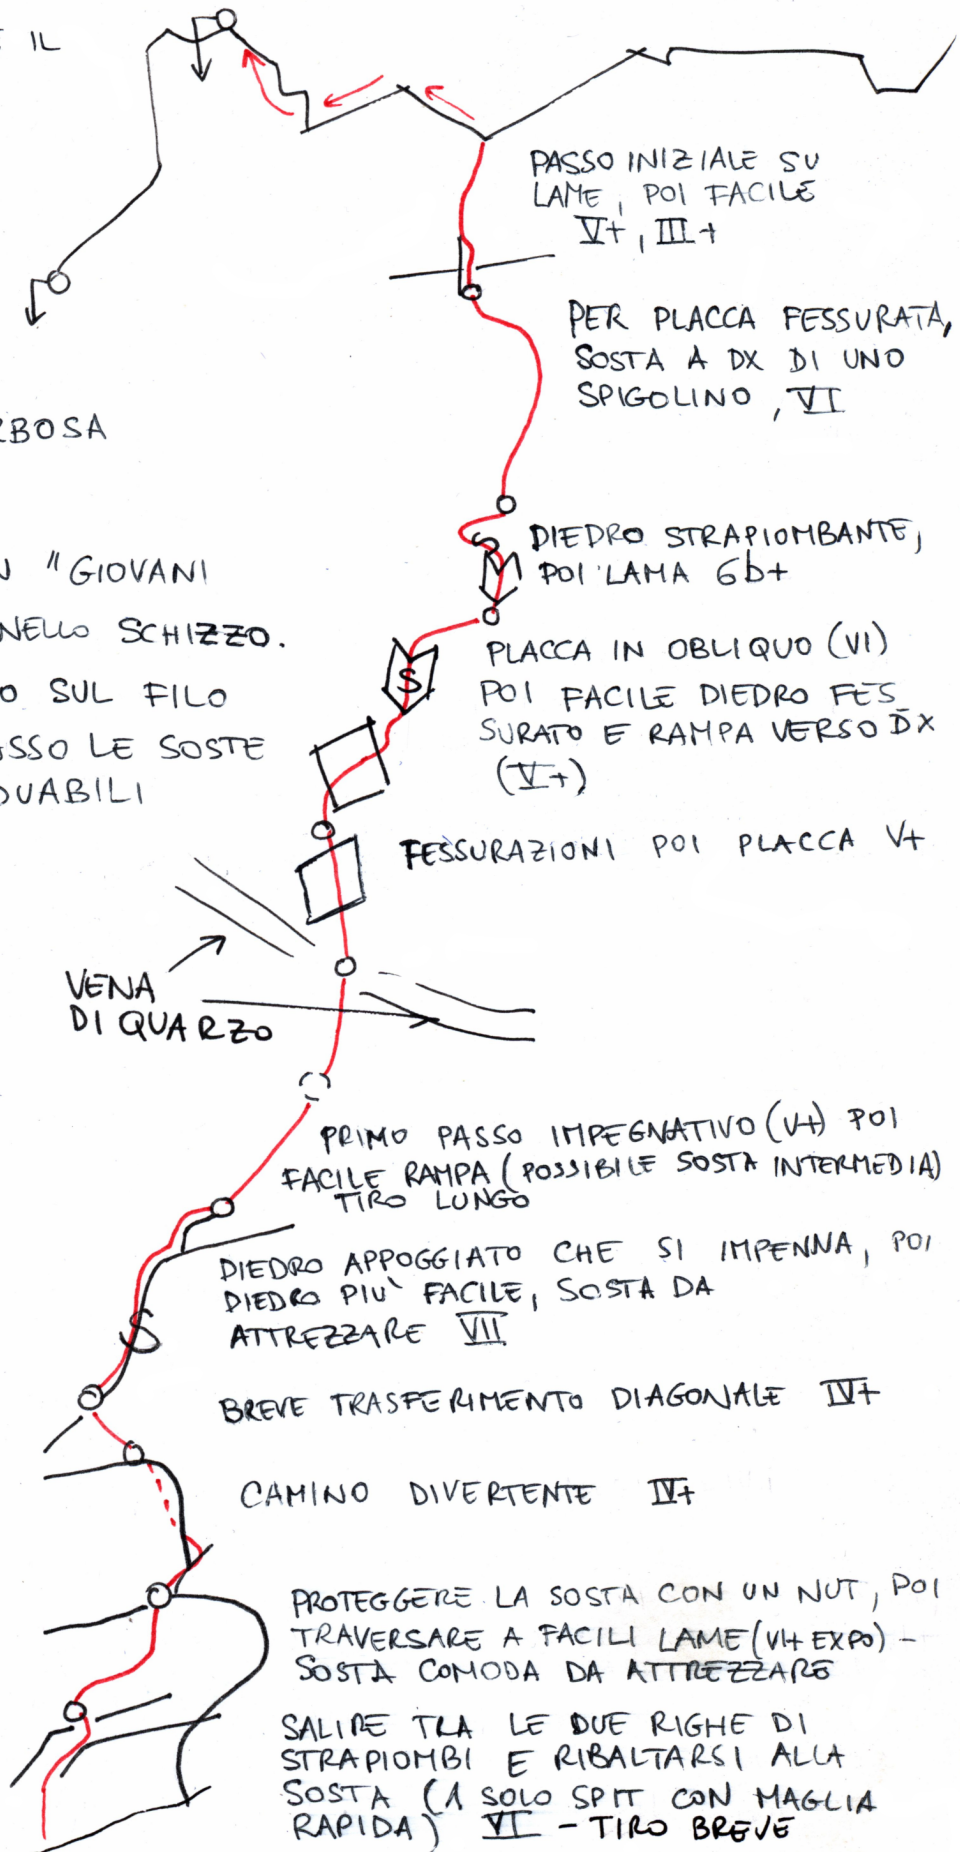 IL
PASSO INIZIALE SU
LAME, POI FACILE
V+, III+
PER PLACCA FESSURATA,
SOSTA A DX DI UNO
SPIGOLINO, VI
RBOSA
DIEDRO STRAPIOMBANTE,
POI LAMA 6b+
"GIOVANI
NELLO SCHIZZO.
O SUL FILO
SSO LE SOSTE
DUABILI
PLACCA IN OBLIQUO (VI)
POI FACILE DIEDRO FES_
SURATO E RAMPA VERSO DX
(V+)
S
FESSURAZIONI POI PLACCA V+
VENA
DI QUARZO
PRIMO PASSO IMPEGNATIVO (V+) POI
FACILE RAMPA (POSSIBILE SOSTA INTERMEDIA)
TIRO LUNGO
DIEDRO APPOGGIATO CHE SI IMPENNA, POI
DIEDRO PIU' FACILE, SOSTA DA
ATTREZZARE VII
BREVE TRASFERIMENTO DIAGONALE IV+
CAMINO DIVERTENTE IV+
PROTEGGERE LA SOSTA CON UN NUT, POI
TRAVERSARE A FACILI LAME (VI+ EXPO) -
SOSTA COMODA DA ATTREZZARE
SALIRE TRA LE DUE RIGHE DI
STRAPIOMBI E RIBALTARSI ALLA
SOSTA (1 SOLO SPIT CON MAGLIA
RAPIDA) VI - TIRO BREVE